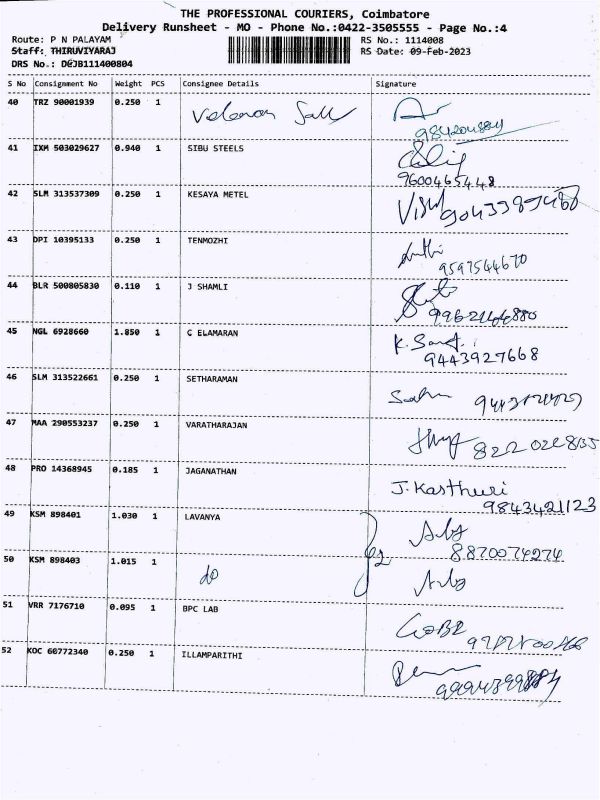 THE PROFESSIONAL COURIERS, Coimbatore
Delivery Runsheet - MO - Phone No.:0422-3505555 - Page No.:4
Route: P N PALAYAM RS No.: 1114008
Staff: THIRUVIYARAJ RS Date: 09-Feb-2023
DRS No.: D0JB111400804
S No Consignment No Weight PCS Consignee Details Signature
40 TRZ 90001939 0.250 1
41 IXM 503029627 0.940 1 SIBU STEELS
9600465448
42 SLM 313537309 0.250 1 KESAYA METEL
43 DPI 10395133 0.250 1 TENMOZHI
9597544670
44 BLR 500805830 0.110 1 J SHAMLI
45 NGL 6928660 1.850 1 C ELAMARAN
9443927668
46 SLM 313522661 0.250 1 SETHARAMAN
47 MAA 290553237 0.250 1 VARATHARAJAN
48 PRO 14368945 0.185 1 JAGANATHAN
J. Kasthuri
9843421123
49 KSM 898401 1.030 1 LAVANYA
8870074274
50 KSM 898403 1.015 1 do
51 VRR 7176710 0.095 1 BPC LAB
52 KOC 60772340 0.250 1 ILLAMPARITHI